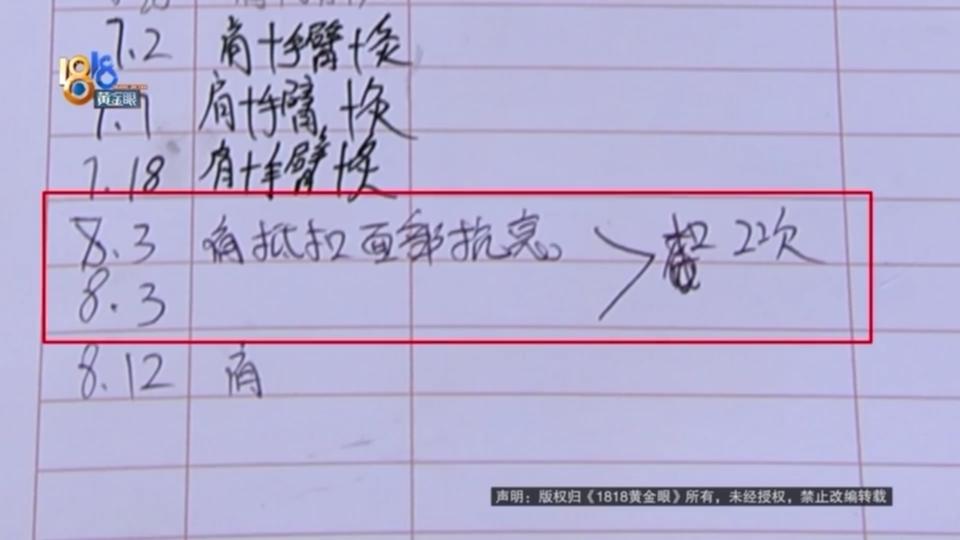 7.2 肩+手臂+灸
1818
黄金眼
7.7 肩+手臂+灸
7.18 肩+手臂+灸
8.3 肩抵扣面部抗衰 扣22次
8.3
8.12 肩
声明：版权归《1818黄金眼》所有，未经授权，禁止改编转载